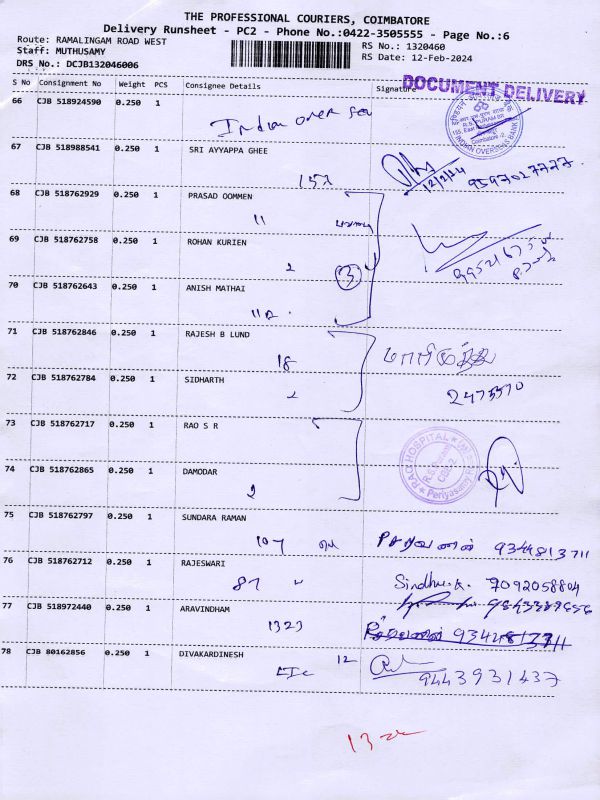 THE PROFESSIONAL COURIERS, COIMBATORE
Delivery Runsheet - PC2 - Phone No.:0422-3505555 - Page No.:6
Route: RAMALINGAM ROAD WEST
Staff: MUTHUSAMY
DRS No.: DCJB132046006
RS No.: 1320460
RS Date: 12-Feb-2024
S No Consignment No Weight PCS Consignee Details Signature
DOCUMENT DELIVERY
66 CJB 518924590 0.250 1
Indian over sea
INDIAN OVERSEAS BANK
67 CJB 518988541 0.250 1 SRI AYYAPPA GHEE
12/2/24 9597027777
68 CJB 518762929 0.250 1 PRASAD OOMMEN
11
69 CJB 518762758 0.250 1 ROHAN KURIEN
2 3
70 CJB 518762643 0.250 1 ANISH MATHAI
71 CJB 518762846 0.250 1 RAJESH B LUND
18
72 CJB 518762784 0.250 1 SIDHARTH
2 2475570
73 CJB 518762717 0.250 1 RAO S R
RAO HOSPITAL
74 CJB 518762865 0.250 1 DAMODAR
2
75 CJB 518762797 0.250 1 SUNDARA RAMAN
107 9344813711
76 CJB 518762712 0.250 1 RAJESWARI
87 " Sindhu.A. 7092058804
77 CJB 518972440 0.250 1 ARAVINDHAM
1323
78 CJB 80162856 0.250 1 DIVAKARDINESH
LIC 12 9443931437